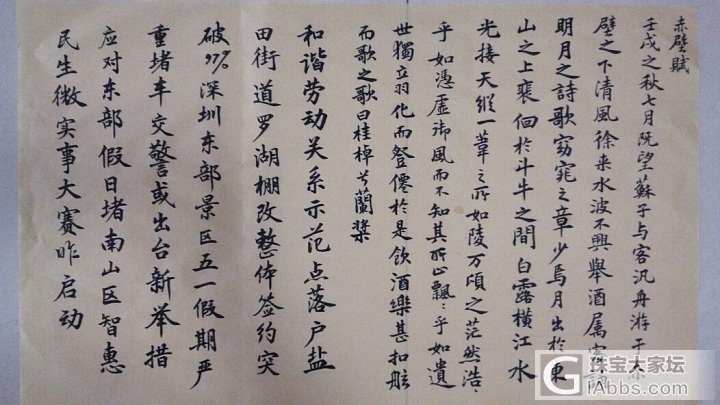 赤壁賦
壬戌之秋七月既望蘇子与客汎舟游于赤
壁之下清風徐来水波不興舉酒属客誦
明月之詩歌窈窕之章少焉月出於東
山之上裴佪於斗牛之間白露横江水
光接天縱一葦之所如陵万頃之茫然浩〻
乎如憑虚御風而不知其所止飄〻乎如遺
世獨立羽化而登僊於是飲酒樂甚扣舷
而歌之歌曰桂棹兮蘭槳
和谐劳动关系示范点落户盐
田街道罗湖棚改整体签约突
破97%深圳东部景区五一假期严
重堵车交警或出台新举措
应对东部假日堵南山区智惠
民生微实事大赛昨启动
珠宝大家坛
iAbbs.com